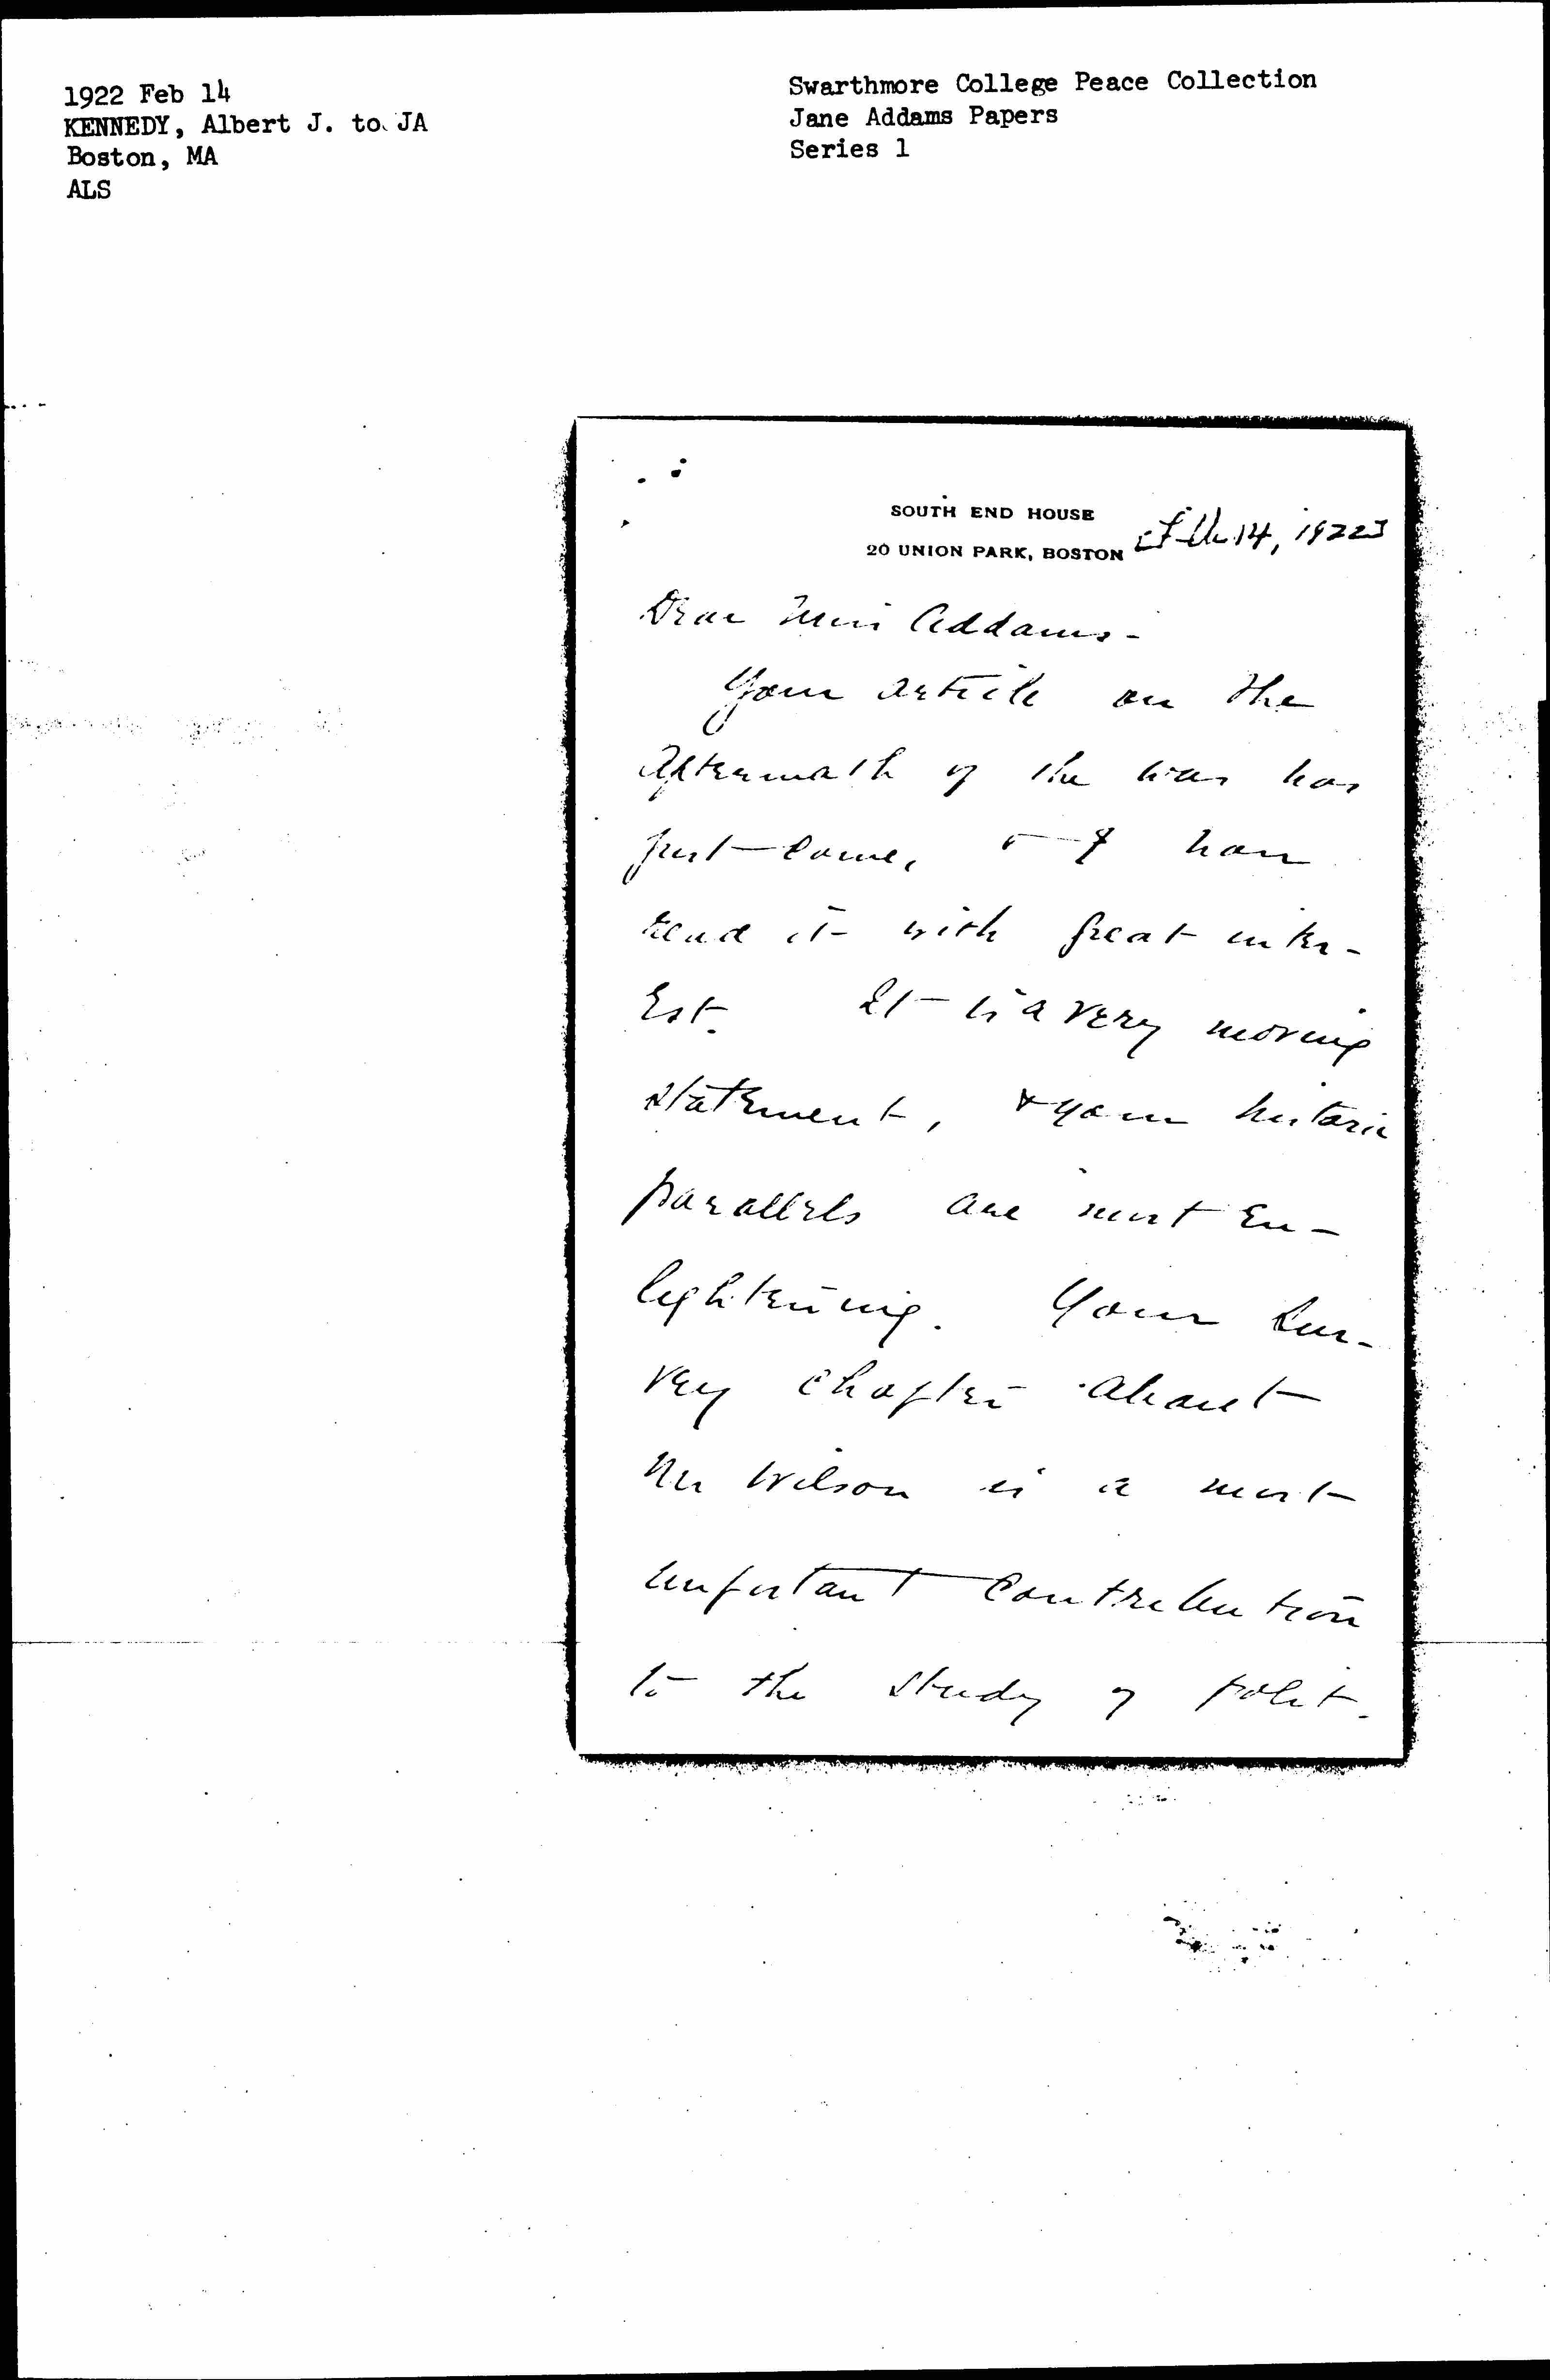 1922 Feb 14
KENNEDY, Albert J. to JA
Boston, MA
ALS
Swarthmore College Peace Collection
Jane Addams Papers
Series 1
SOUTH END HOUSE
20 UNION PARK, BOSTON
[Feb 14, 1922]
Dear Miss Addams -
Your article on the
Aftermath of the war has
just come, & I have
read it with great inter-
est. It is a very moving
statement, & your historic
parallels are most en-
lightening. Your Sur-
vey chapter about
Mr Wilson is a most
important contribution
to the study of polit-